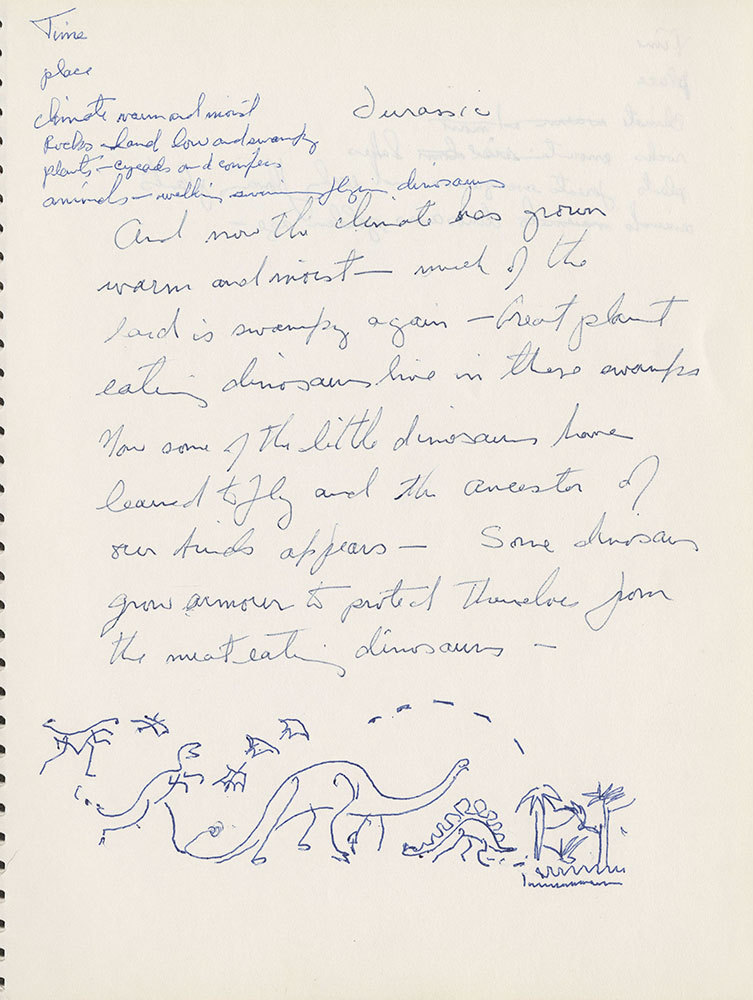 Time
place
climate warm and moist
Jurassic
Rocks - land low and swampy
plants - cycads and conifers
animals - walking swimming flying dinosaurs
And now the climate has grown
warm and moist - much of the
land is swampy again - Great plant
eating dinosaurs live in these swamps
Now some of the little dinosaurs have
learned to fly and the ancestor of
our birds appears - Some dinosaurs
grow armour to protect themselves from
the meat eating dinosaurs -